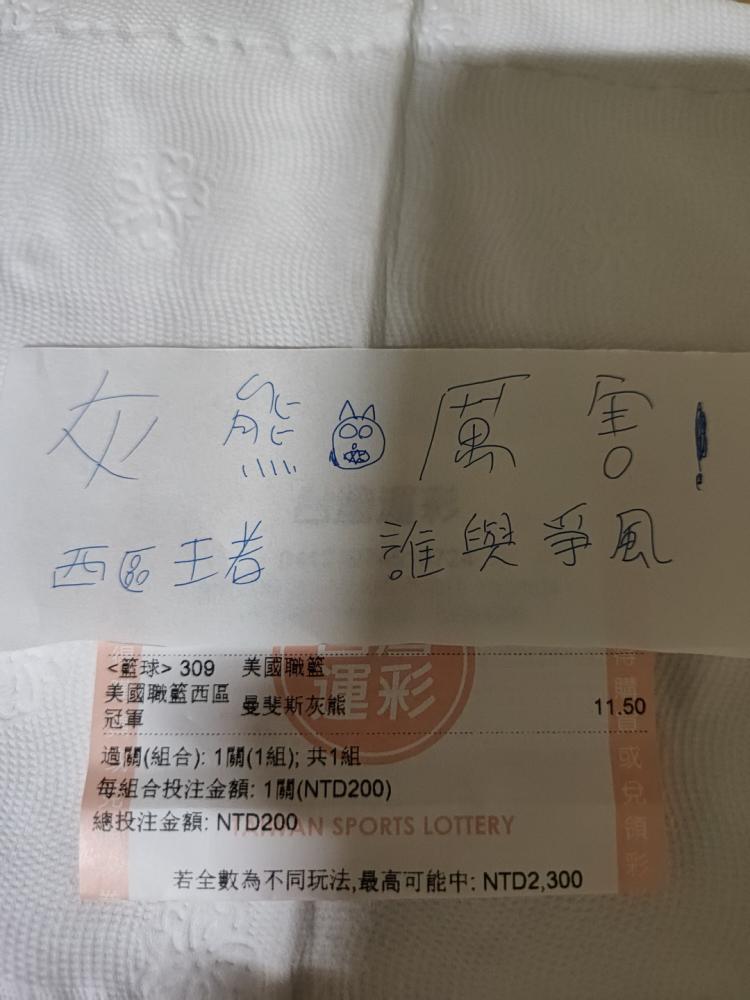 灰熊厲害!
西區王者 誰與爭風
<籃球> 309 美國職籃
美國職籃西區冠軍 曼斐斯灰熊 11.50
運彩
過關(組合): 1關(1組); 共1組
每組合投注金額: 1關(NTD200)
總投注金額: NTD200
TAIWAN SPORTS LOTTERY
若全數為不同玩法,最高可能中: NTD2,300